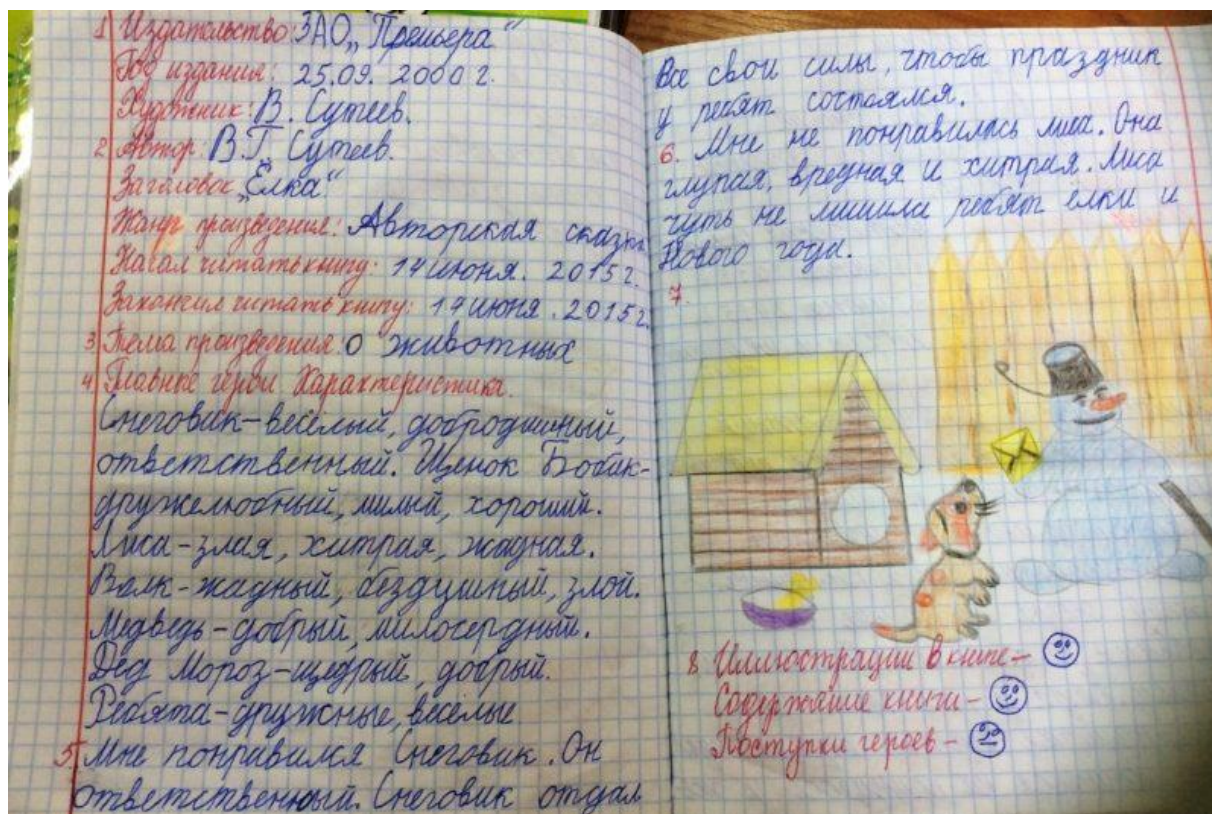 1 Издательство: ЗАО „Премьера“
Год издания: 25.09. 2000 г.
Художник: В. Сутеев.
2 Автор: В.Г. Сутеев.
Заголовок „Ёлка“
Жанр произведения: Авторская сказка
Начал читать книгу: 14 июня. 2015 г.
Закончил читать книгу: 14 июня. 2015 г.
3 Тема произведения: о животных
4 Главные герои. Характеристика.
Снеговик-весёлый, добродушный,
ответственный. Щенок Бобик-
дружелюбный, милый, хороший.
Лиса-злая, хитрая, жадная.
Волк-жадный, бездушный, злой.
Медведь-добрый, милосердный.
Дед Мороз-щедрый, добрый.
Ребята-дружные, весёлые
5. Мне понравился Снеговик. Он
ответственный. Снеговик отдал
Все свои силы, чтобы праздник
у ребят состоялся.
6. Мне не понравилась лиса. Она
глупая, вредная и хитрая. Лиса
чуть не лишила ребят ёлки и
Нового года.
7.
8. Иллюстрации в книге-
Содержание книги-
Поступки героев-